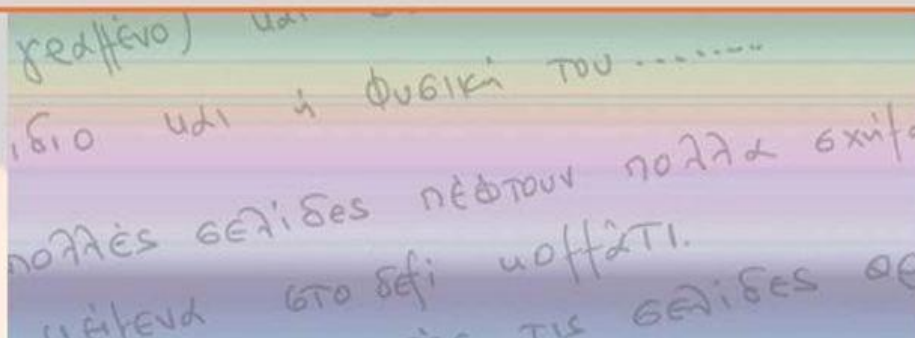 γραμμένο) και
ίδιο και ή φυσική του ........
πολλές σελίδες πέφτουν πολλά
κείμενα στο δεξί κομμάτι.
τις σελίδες